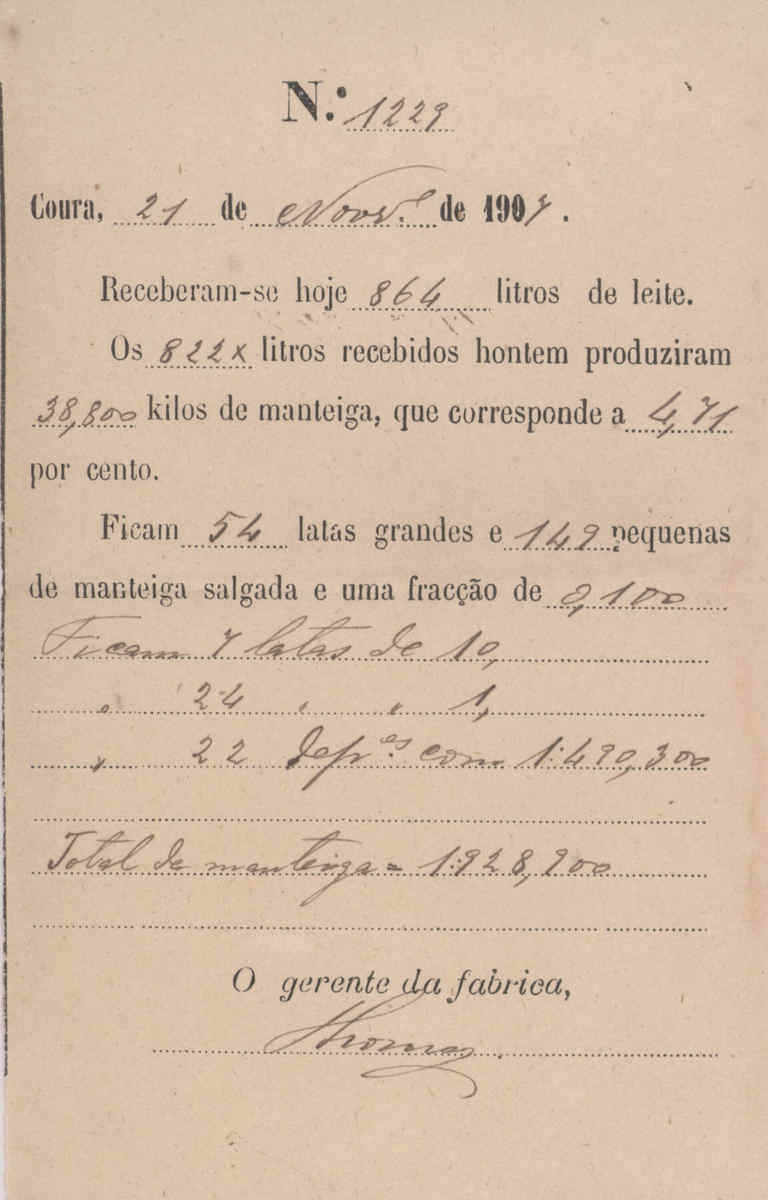 N.º 1229
Coura, 21 de Novr.e de 1907.
Receberam-se hoje 864 litros de leite.
Os 822x litros recebidos hontem produziram
38,800 kilos de manteiga, que corresponde a 4,71
por cento.
Ficam 54 latas grandes e 149 pequenas
de manteiga salgada e uma fracção de 0,100
Ficam 7 latas de 10,
" 24 " " 1,
" 22 dep.es com 1:490,300
Total de manteiga = 1:928,900
O gerente da fabrica,
Thomaz